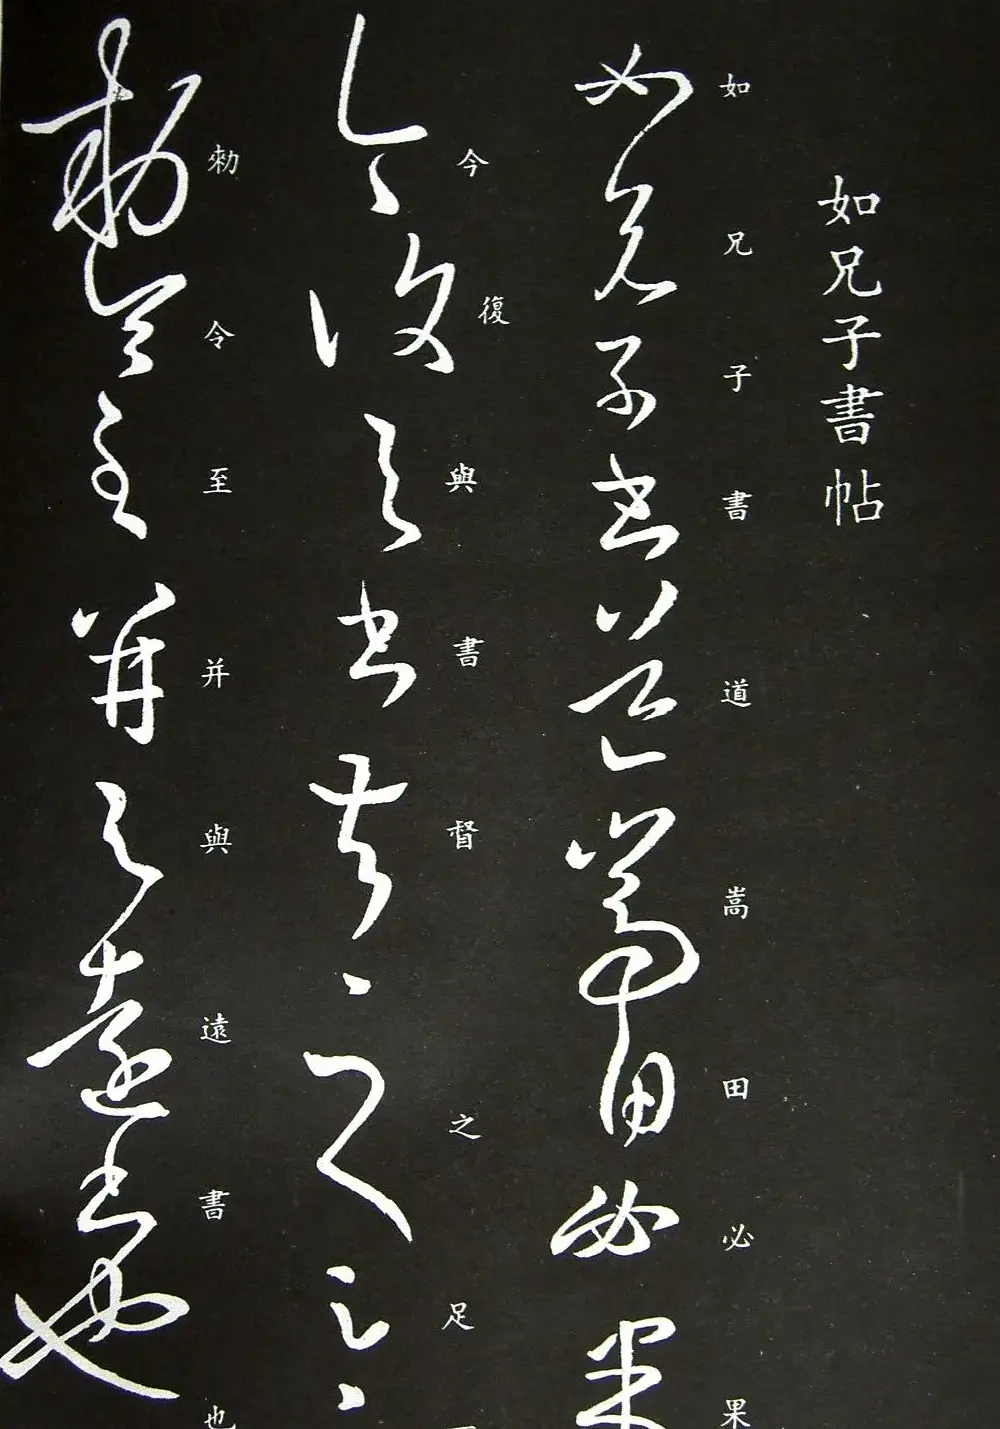 如兄子書帖
如兄子書道嵩田必果
今復與書督之足
勑令至并與遠書也